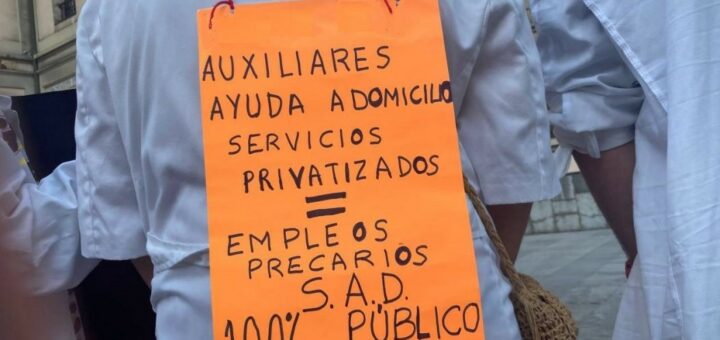 AUXILIARES
AYUDA A DOMICILIO
SERVICIOS
PRIVATIZADOS
=
EMPLEOS
PRECARIOS
S.A.D.
100% PÚBLICO